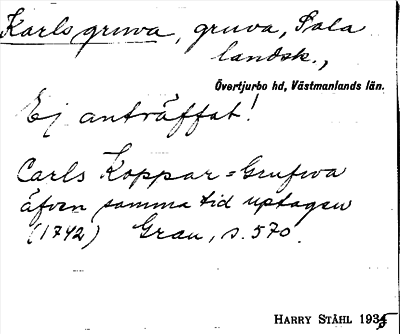 Karlsgruva, gruva, Sala
landsk.,
Övertjurbo hd, Västmanlands län.
Ej anträffat!
Carls Koppar=Grufwa
äfven samma tid uptagen
(1742) Grau, s. 570.
HARRY STÅHL 1935